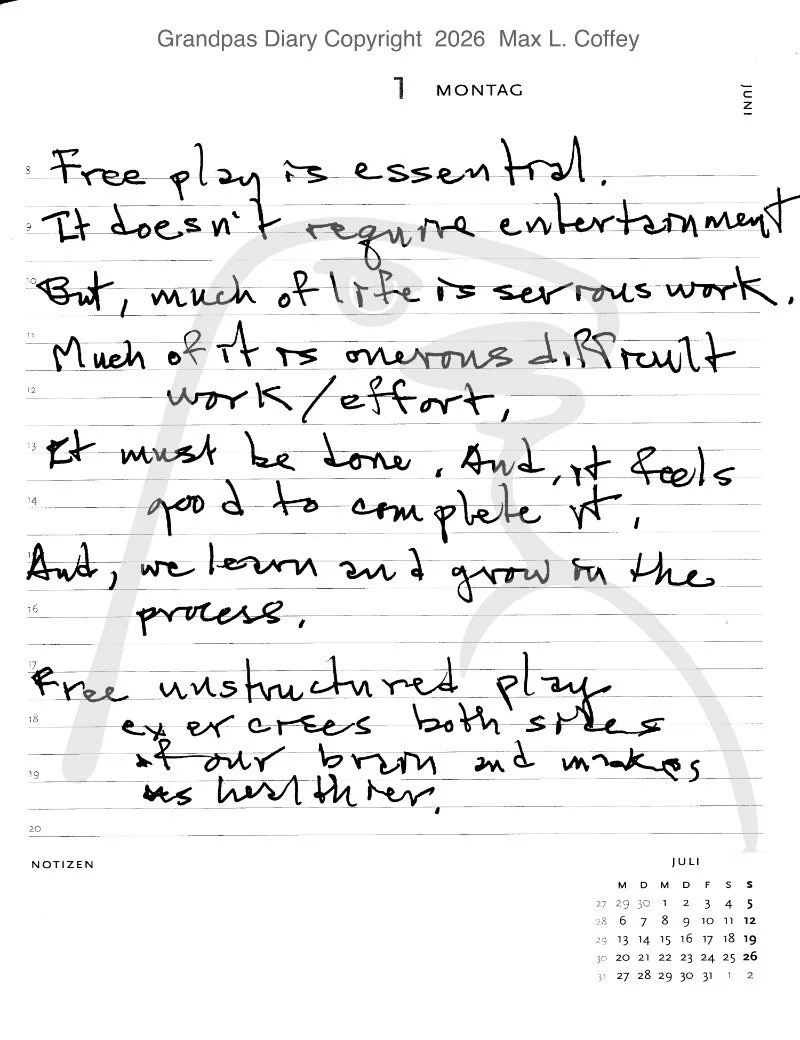 Grandpas Diary Copyright 2026 Max L. Coffey
1 MONTAG
JUNI
8 Free play is essential.
9 It doesn't require entertainment
10 But, much of life is serious work.
11 Much of it is onerous difficult
12 work/effort,
13 It must be done. And, it feels
14 good to complete it.
And, we learn and grow in the
16 process.
17 Free unstructured play
18 exercises both sides
of our brain and makes
19 us healthier.
20
NOTIZEN
JULI
M D M D F S S
27 29 30 1 2 3 4 5
28 6 7 8 9 10 11 12
29 13 14 15 16 17 18 19
30 20 21 22 23 24 25 26
31 27 28 29 30 31 1 2